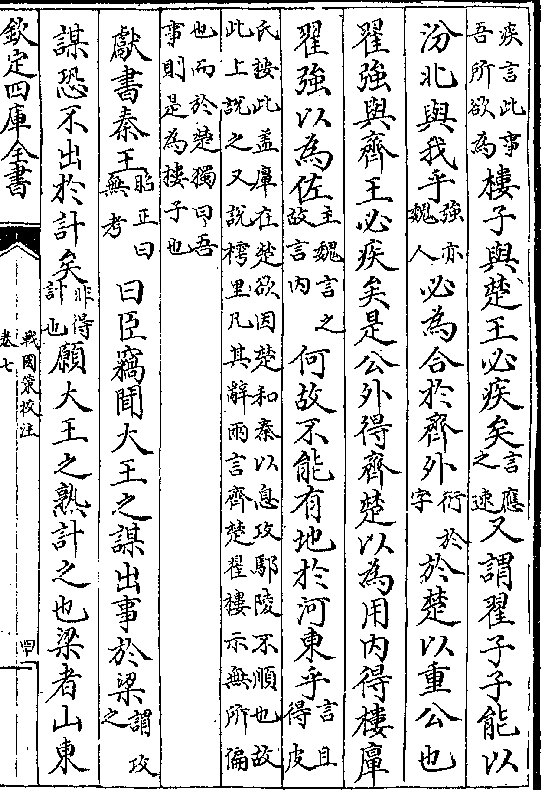 疾言此事吾所欲為樓子與楚王必疾矣言應之速又謂翟子子能以
汾北與我乎強亦魏人必為合於齊外衍於字於楚以重公也
翟強與齊王必疾矣是公外得齊楚以為用内得樓庳
翟強以為佐主魏言之故言内何故不能有地於河東乎言且得皮
氏接此盖庳在楚欲因楚和秦以息攻鄢陵不順也故此上說之又說樗里凡其辭兩言齊楚翟樓示無所偏
也而於楚獨曰吾事則是為樓子也
獻書秦王昭正曰無考曰臣竊聞大王之謀出事於梁謂攻之
謀恐不出於計矣非得計也願大王之熟計之也梁者山東
欽定四庫全書
戰國策校注
卷七
四